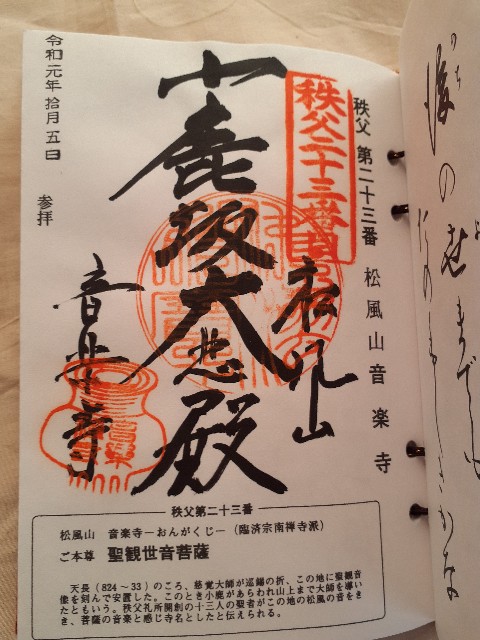 秩父 第二十三番 松風山音楽寺
秩父二十三番
松風山
小鹿坂大悲殿
音楽寺
令和元年拾月五日 参拝
秩父第二十三番
松風山 音楽寺－おんがくじ－（臨済宗南禅寺派）
ご本尊 聖観世音菩薩
天長（824～33）のころ、慈覚大師が巡錫の折、この地に聖観音
像を刻んで安置した。このとき小鹿があらわれ山上まで大師を導い
たともいう。秩父札所開創の十三人の聖者がこの地の松風の音をき
き、菩薩の音楽と感じ寺名としたと伝えられる。